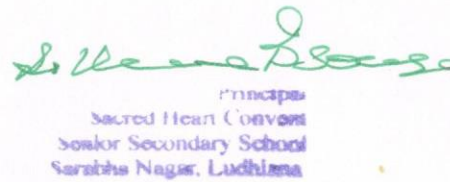 Principal
Sacred Heart Convent
Senior Secondary School
Sarabha Nagar, Ludhiana